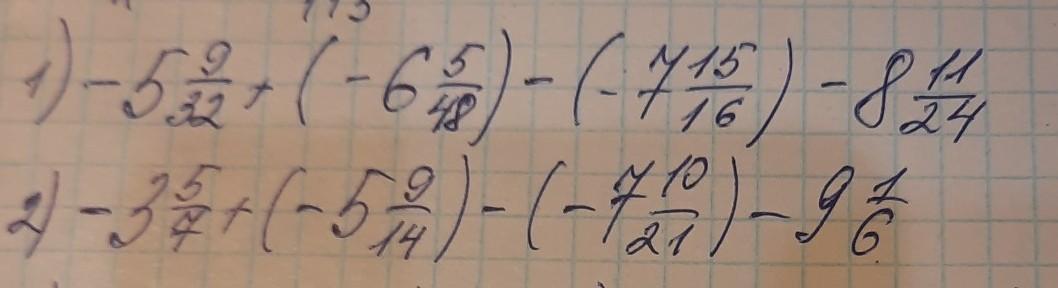 1) -5 9/32 + (-6 5/48) - (-7 15/16) - 8 11/24
2) -3 5/7 + (-5 9/14) - (-7 10/21) - 9 1/6